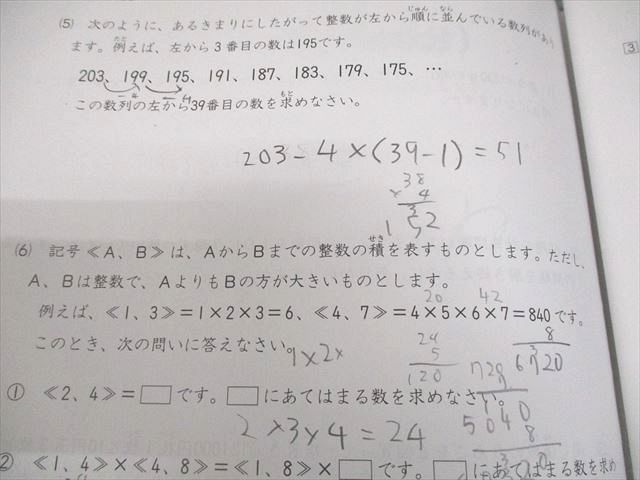 (5) 次のように、あるきまりにしたがって整数が左から順に並んでいる数列があり
ます。例えば、左から3番目の数は195です。
203、199、195、191、187、183、179、175、…
-4 -4
この数列の左から39番目の数を求めなさい。
203-4×(39-1)=51
38
×4
152
3
(6) 記号≪A、B≫は、AからBまでの整数の積を表すものとします。ただし、
A、Bは整数で、AよりもBの方が大きいものとします。
20 42
例えば、≪1、3≫=1×2×3=6、≪4、7≫=4×5×6×7=840です。
このとき、次の問いに答えなさい。
1×2×
24
5
120
8
6720
① ≪2、4≫=□です。□にあてはまる数を求めなさい。
2×3×4=24
5040
8
② ≪1、4≫×≪4、8≫=≪1、8≫×□です。□にあてはまる数を求め